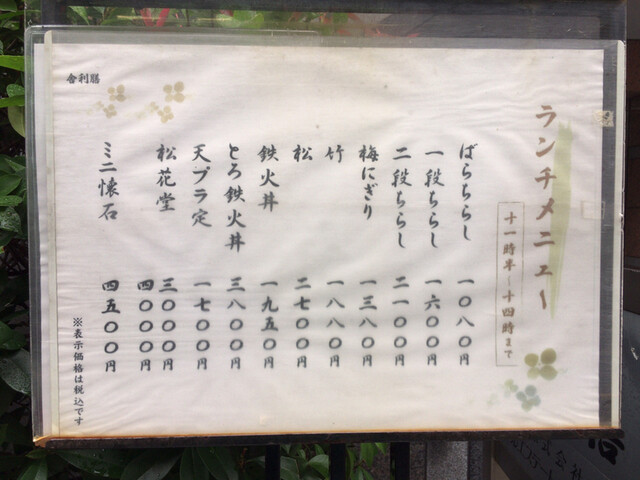 ランチメニュー
十一時半ー十四時まで
ばらちらし 一〇八〇円
一段ちらし 一六〇〇円
二段ちらし 二一〇〇円
梅にぎり 一三八〇円
竹 一八八〇円
松 二七〇〇円
鉄火丼 一九五〇円
とろ鉄火丼 三八〇〇円
天プラ定 一七〇〇円
松花堂 三〇〇〇円
四〇〇〇円
ミニ懐石 四五〇〇円
※表示価格は税込です
舎利膳